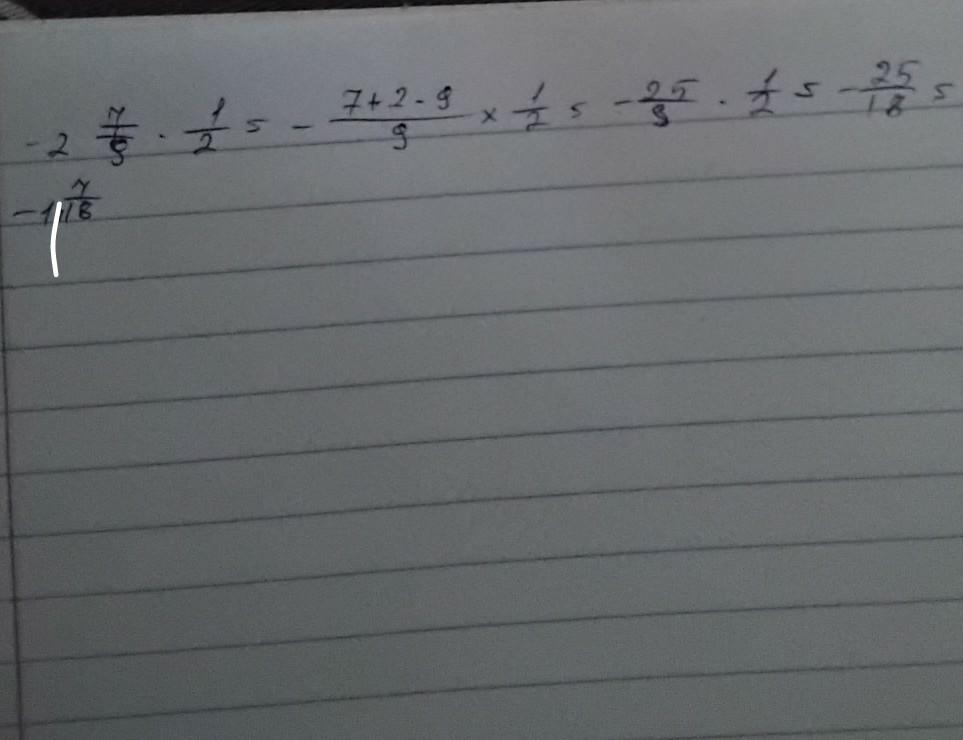 -2 7/9 · 1/2 = - (7+2·9)/9 × 1/2 = - 25/9 · 1/2 = - 25/18 =
-1 7/18